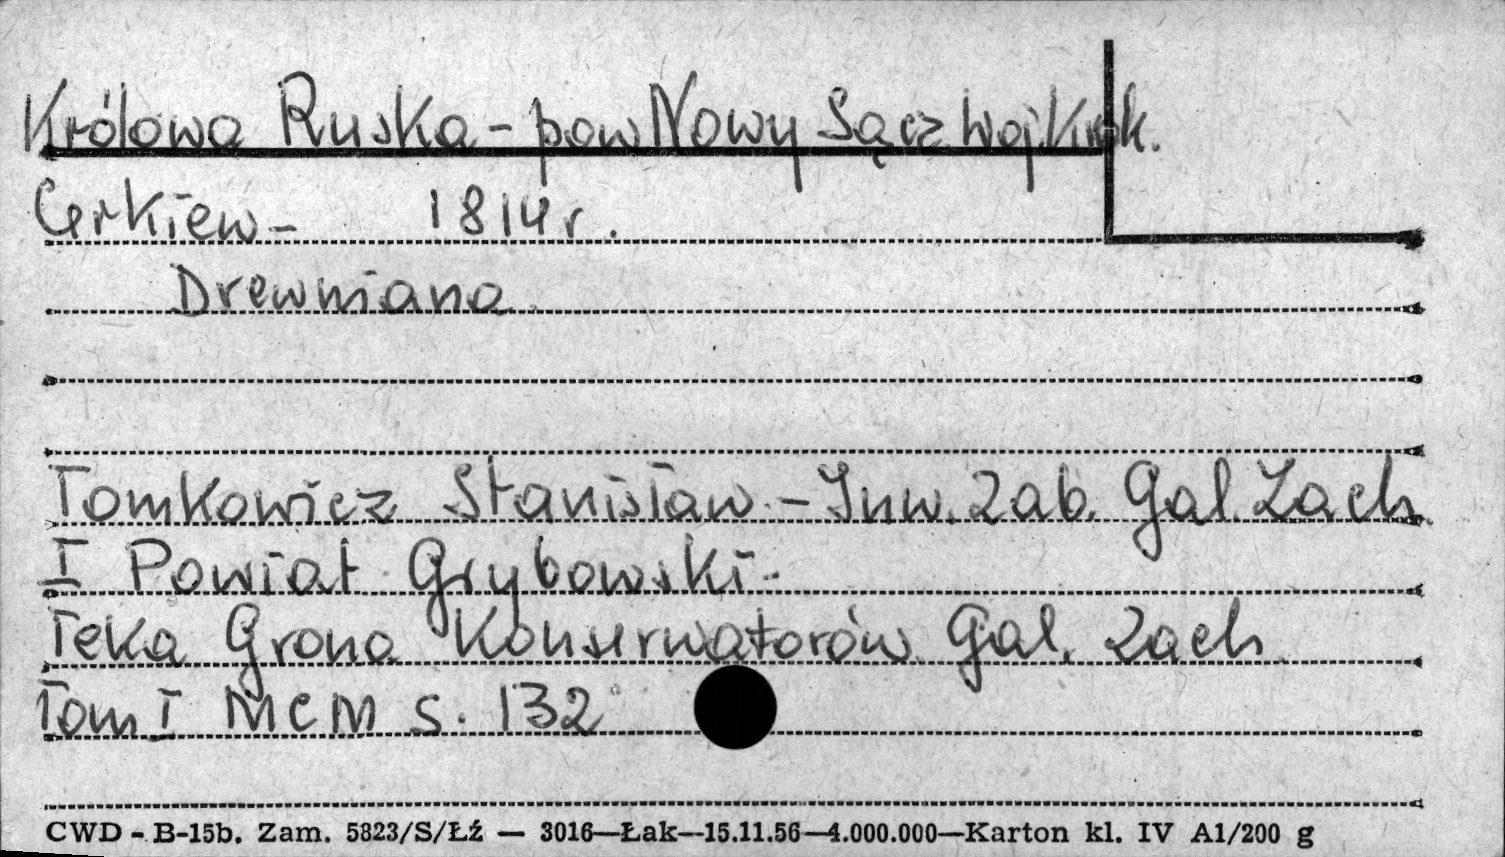 Królowa Ruska - pow Nowy Sącz Woj. Krak.
Cerkiew - 1814 r.
Drewniana
Tomkowicz Stanisław - Inw. Zab. Gal. Zach.
I Powiat Grybowski -
Teka Grona Konserwatorów Gal. Zach
Tom I MCM s. 132
CWD - B-15b. Zam. 5823/S/Łź — 3016—Łak—15.11.56—4.000.000—Karton kl. IV A1/200 g